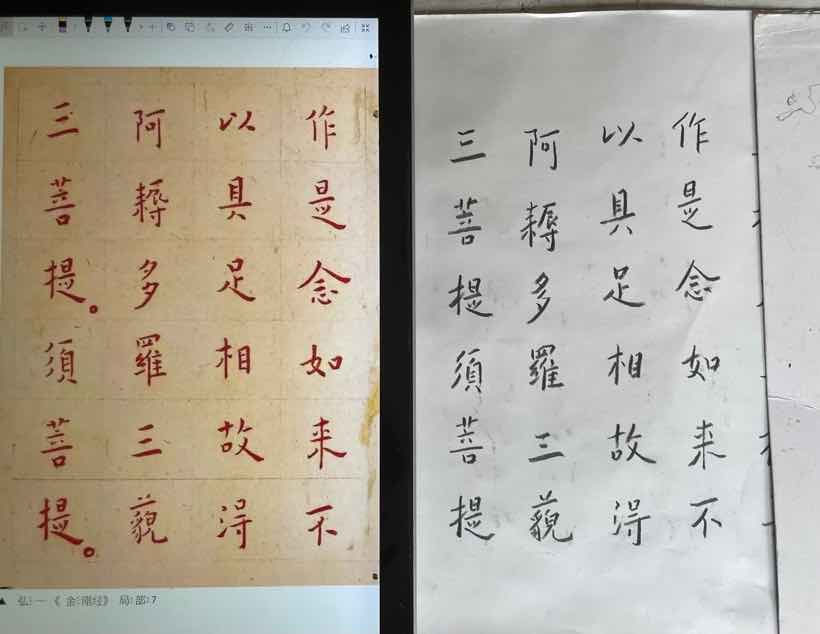 作是念如来不
以具足相故得
阿耨多羅三藐
三菩提。須菩提。
弘一《金剛经》局部7
作是念如来不
以具足相故得
阿耨多羅三藐
三菩提須菩提